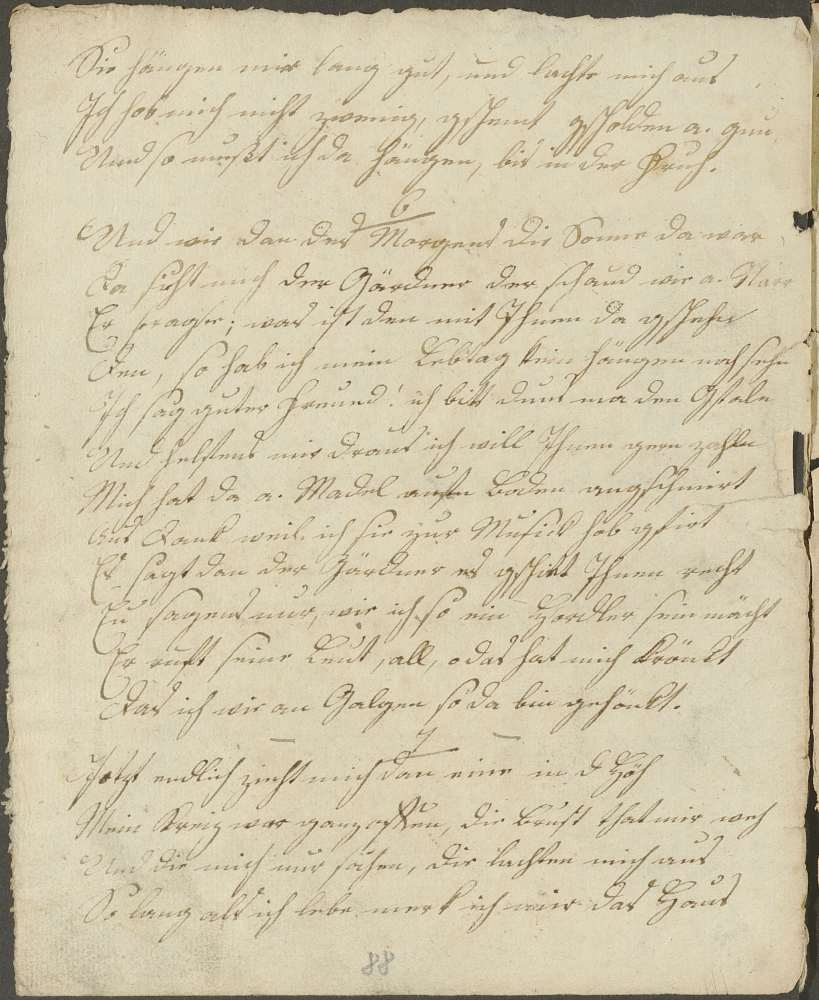 Sie hängen mir lang gut, und lachte mich aus
Ich hob mich nicht zwenig, gschemt gscholden a. gnu
Und so mußt ich da hängen, bis in der Fruh.
6
Und wie dan des Morgens die Sonne da war
Da sicht mich der Gärdner der schaud wie a. Narr
Er fragte; was ist den mit Ihnen da gschehn
Den, so hab ich mein Lebtag kein hängen noch sehn
Ich sag guter Freund! ich bitt duns ma den Gfaln
Und helfens mir draus ich will Ihnen gern zahln
Mich hat da a. Madel aufn Boden angschmirt
Aus Dank weil ich sie zur Musick hob gfirt
Es sagt dan der Gärdner es gschiet Ihnen recht
sagens nur, wie ich so ein sein mächt
Er ruft seine Leut, all, o das hat mich kränkt
Das ich wie an Galgen so da bin gehänkt.
7
Jetzt endlich zieht mich dan eine in d Höh
Mein Kreiz war ganz offen, die Brust that mir weh
Und die mich nur sahen, die lachten mich aus
So lang als ich lebe merk ich mir das Haus
88